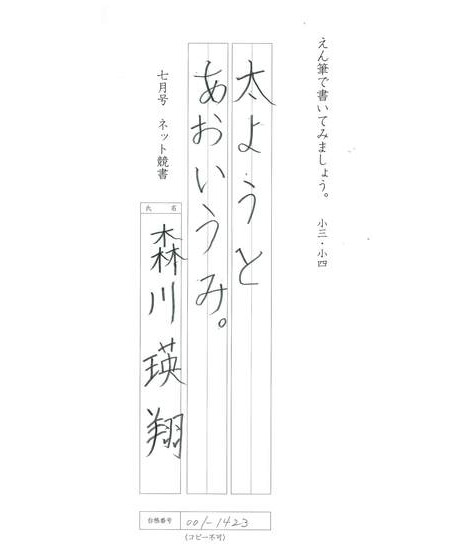 えん筆で書いてみましょう。 小三・小四
太ようと
あおいうみ。
七月号 ネット競書
氏 名
森川瑛翔
台帳番号 001-1423
(コピー不可)